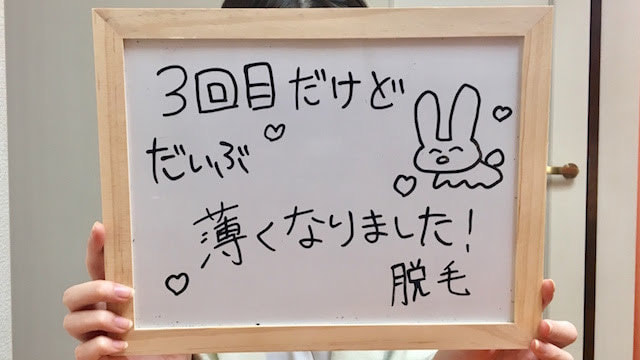 3回目だけど
だいぶ
薄くなりました!
脱毛